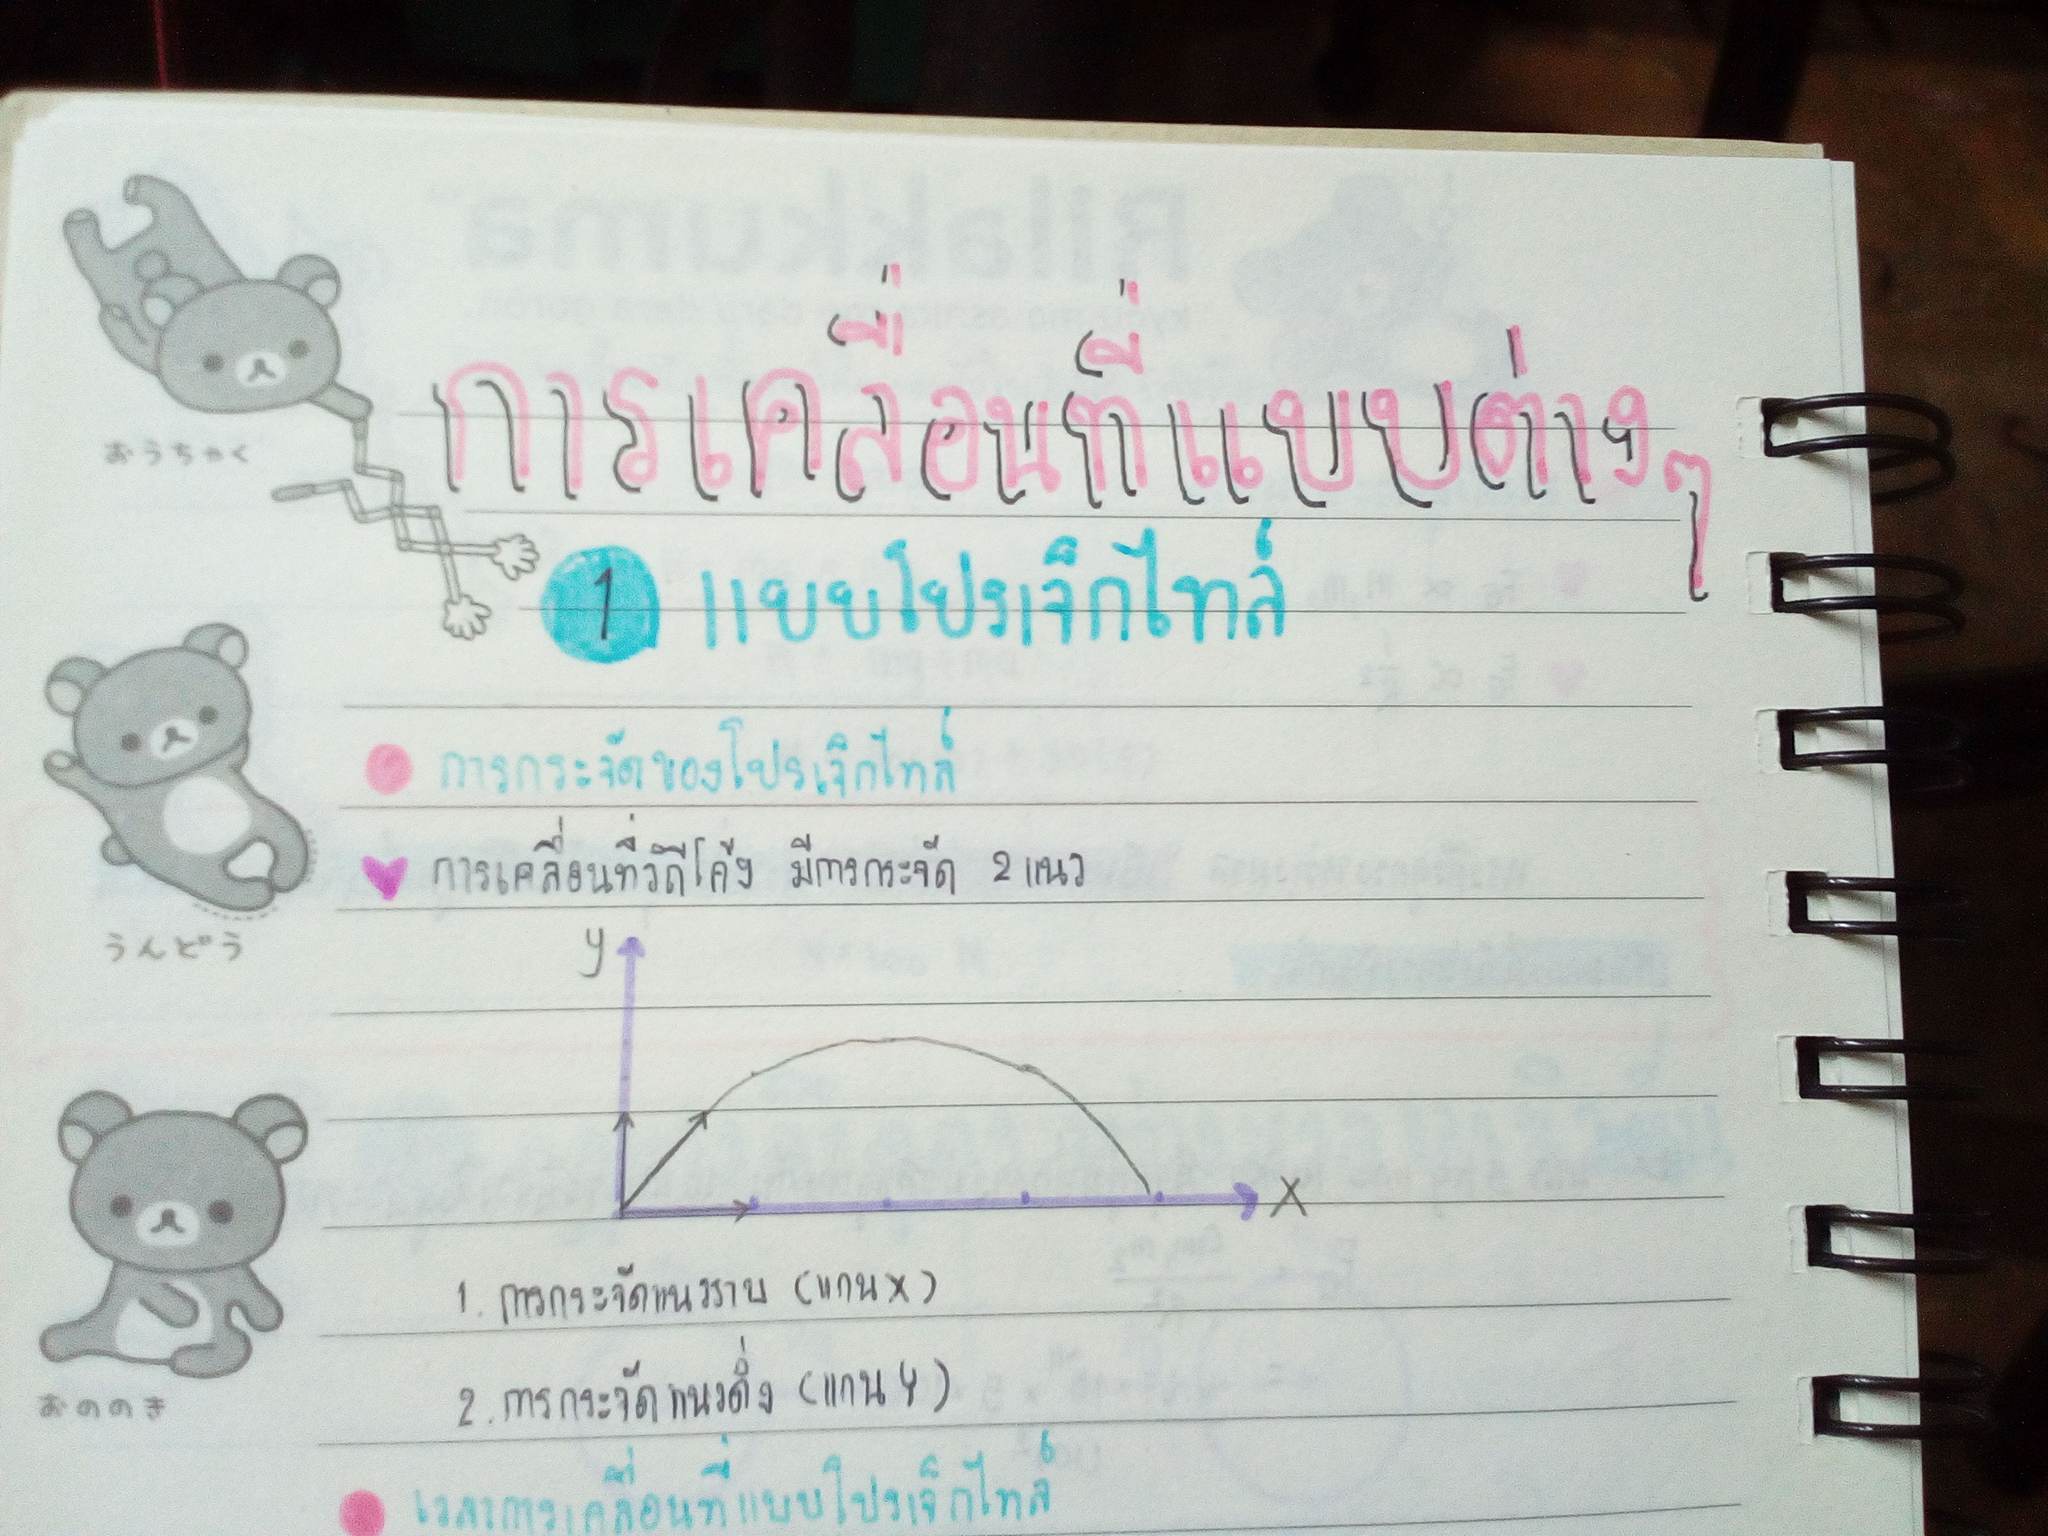 การเคลื่อนที่แบบต่าง ๆ
1 แบบโปรเจ็กไทล์
การกระจัดของโปรเจ็กไทล์
การเคลื่อนที่วิถีโค้ง มีการกระจัด 2 แนว
y
x
1. การกระจัดแนวราบ (แกน x)
2. การกระจัดแนวดิ่ง (แกน y)
เวลาการเคลื่อนที่แบบโปรเจ็กไทล์
おうちゃく
うんどう
おののき
Rilakkuma